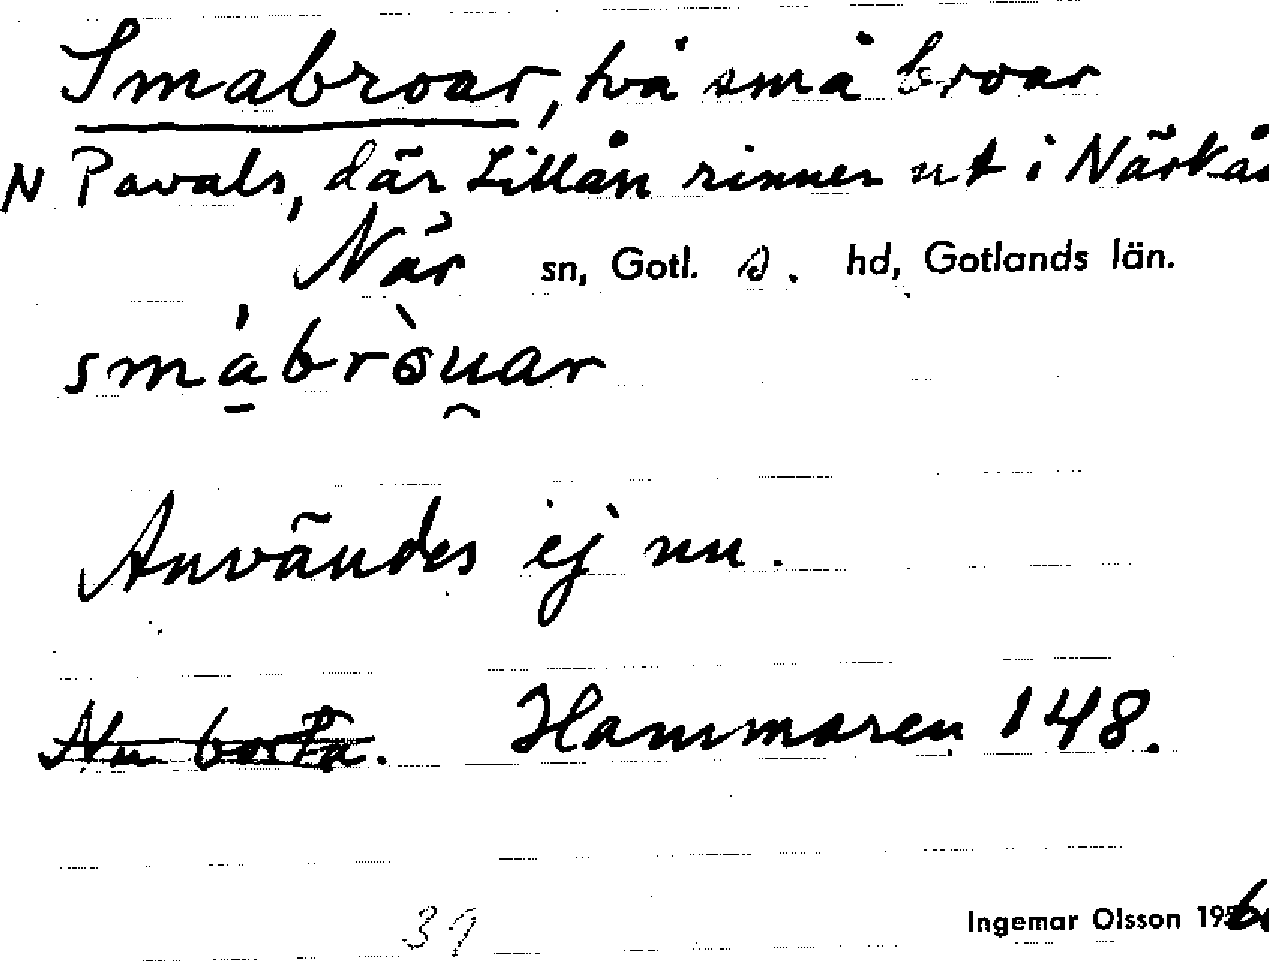 Smabroar, två små broar
N Pavals, där Lillån rinner ut i Närkån
När sn, Gotl. s. hd, Gotlands län.
småbròuar
Användes ej nu.
Nu borta. Hammaren 148.
39
Ingemar Olsson 19